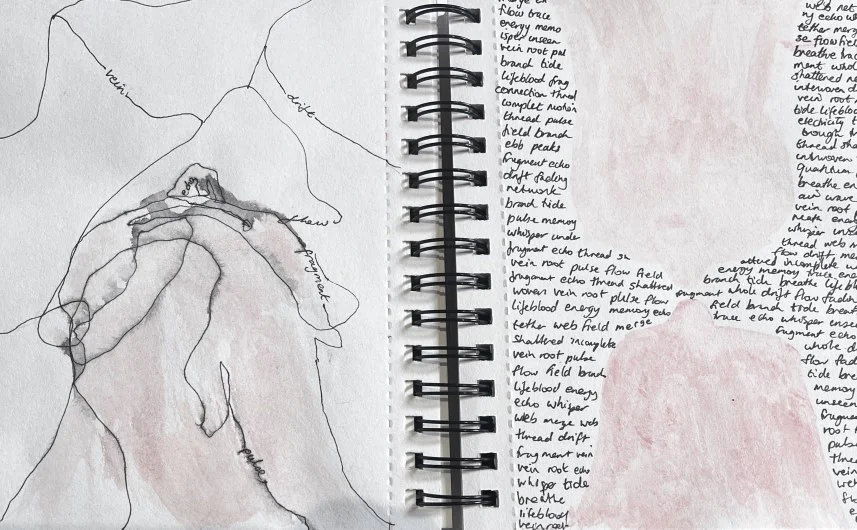 vein
drift
echo
flow
fragment
pulse
flow trace
energy memo
isper unseen
vein root pul
branch tide
lifeblood frag
connection thred
complet motion
thread pulse
field branch
ebb peaks
fragment echo
drift fading
network
brand tide
pulse memory
whisper unde
fragment echo thread sh
vein root pulse flow field
fragment echo thread shattered
woven vein root pulse flow
lifeblood energy memory echo
tether web field merge
shattered incomplete
vein root pulse
flow field branch
lifeblood energy
echo whisper
web merge web
thread drift
fragment vein
vein root echo
whisper tide
breathe
lifeblood
vein root
web net
ny echo w
tether merg
se flow fiel
breathe trac
ment whol
shattered ne
interwoven d
vein root
tide lifeblo
electricity t
brough t
thread sha
interwoven
quantum
breathe en
air wave
vein root
neath ener
whisper unse
thread web m
flow drift me
attered incomplete w
energy memory trace ener
branch tide breathe lifebl
fragment whole drift flow fading
field branch tide breat
trace echo whisper unsee
fragment echo
whole d
flow fad
tide bre
memory
unseen
fragme
root
pulse
thre
vein